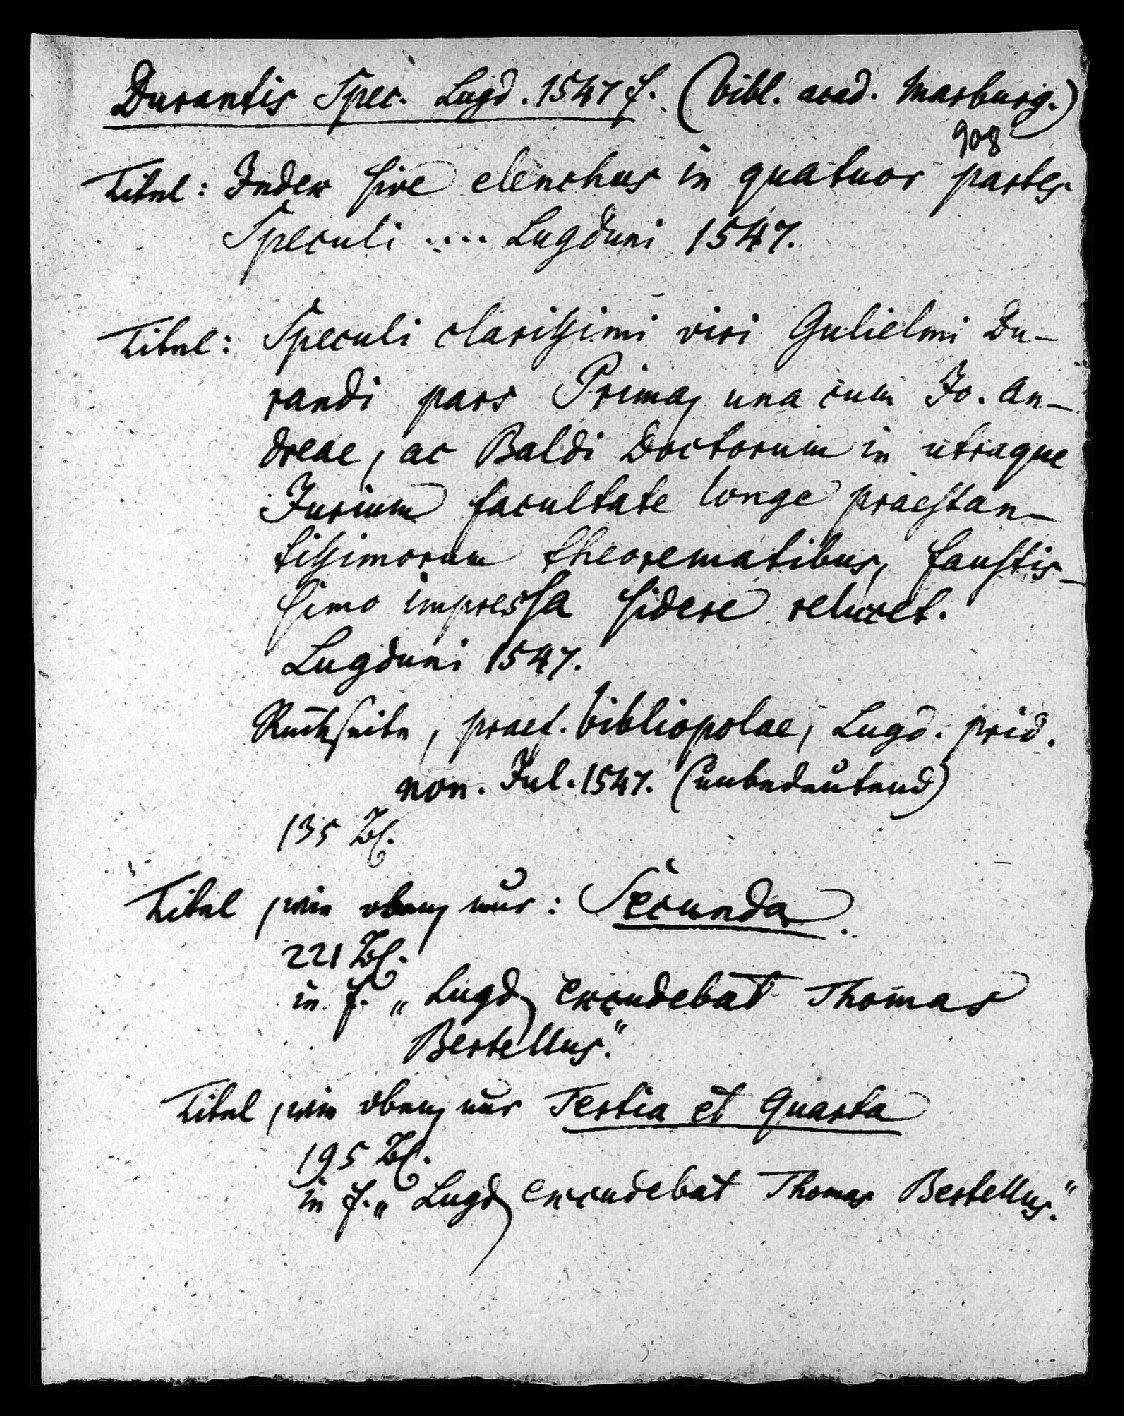 Durantis Spec. Lugd. 1547 f. (bibl. acad. Marburg.)
908
Titel: Index sive elenchus in quatuor partes
Speculi .... Lugduni 1547.
Titel: Speculi clarissimi viri Gulielmi Du-
randi pars Prima, una cum Jo. An-
dreae, ac Baldi Doctorum in utraque
Jurium facultate longe praestan-
tissimorum theorematibus, faustis-
simo impressa sidere relucet.
Lugduni 1547.
Rückseite, praef. bibliopolae, Lugd. prid.
non. Jul. 1547. (unbedeutend)
135 Bl.
Titel, wie oben, nur: Secunda.
221 Bl.
in f. „Lugd, excudebat Thomas
Bertellus."
Titel, wie oben, nur Tertia et Quarta
195 Bl.
in f. „Lugd, excudebat Thomas Bertellus."